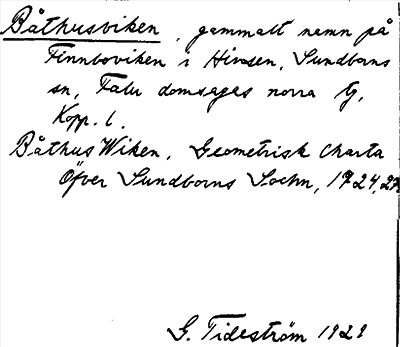 Båthusviken, gammalt namn på
Finnboviken i Hinsen, Sundborns
sn, Falu domsagas norra tg,
Kopp. l.
Båthus Wiken, Geometrisk Charta
Öfver Sundborns Sochn, 1724, 27
G. Tideström 1921